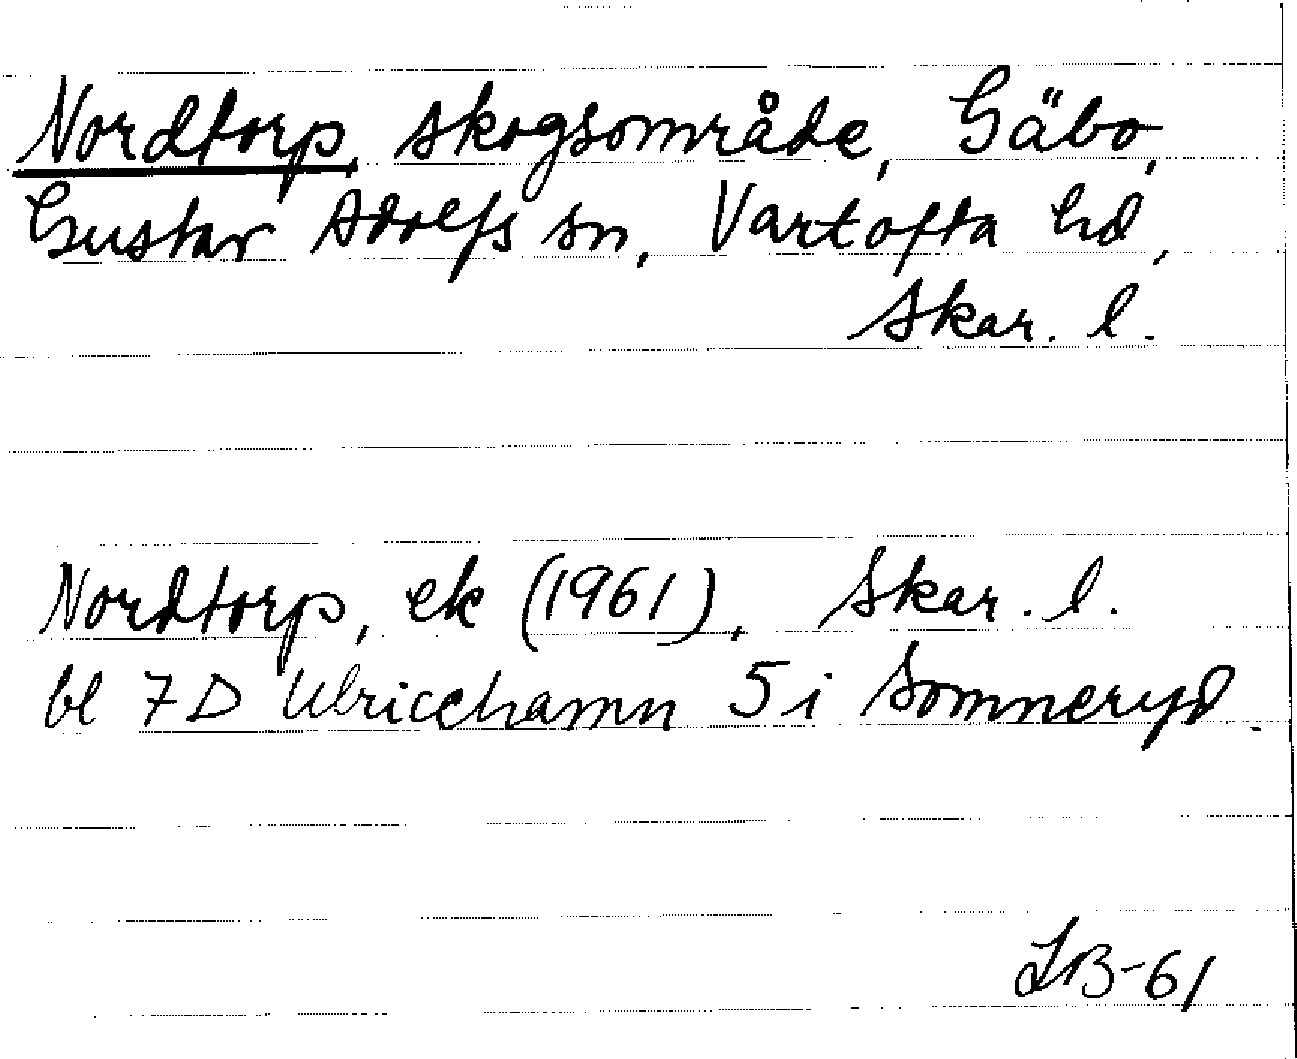 Nordtorp, skogsområde, Gäbo,
Gustav Adolfs sn, Vartofta hd,
Skar. l.
Nordtorp, ek (1961), Skar. l.
bl 7D Ulricehamn 5i Sömneryd.
IB-61